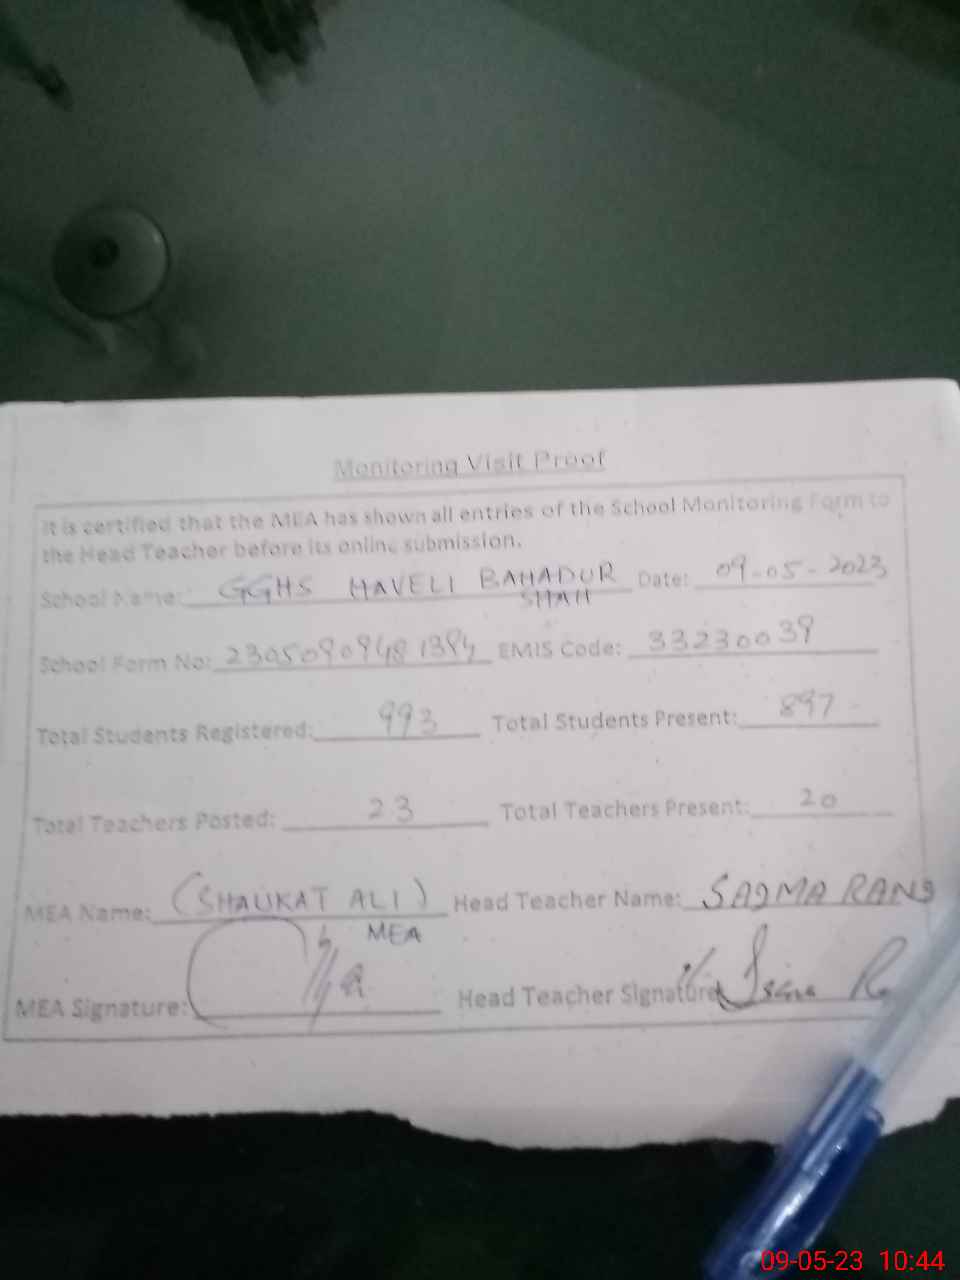 Monitoring Visit Proof
It is certified that the MEA has shown all entries of the School Monitoring Form to
the Head Teacher before its online submission.
School Name: GGHS HAVELI BAHADUR SHAH Date: 09-05-2023
School Form No: EMIS Code: 33230039
Total Students Registered: 993 Total Students Present: 897
Total Teachers Posted: 23 Total Teachers Present: 20
MEA Name: (SHAUKAT ALI) Head Teacher Name:
MEA
MEA Signature: Head Teacher Signature
09-05-23 10:44